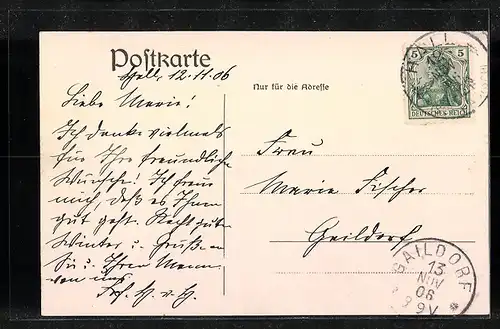 Postkarte
Hall, 12.11.06
Nur für die Adresse
Liebe Marie!
Ich danke vielmals
für Ihre freundlichen
Wünsche! Ich freue
mich, daß es Ihnen
gut geht. Recht guten
Winter u. Grüße an
Sie u. Ihren Mann
von uns
H. v. H.
Frau
Marie Fischer
Gaildorf
5 5
DEUTSCHES REICH
HALL
GAILDORF
13
NOV
06
8 9V